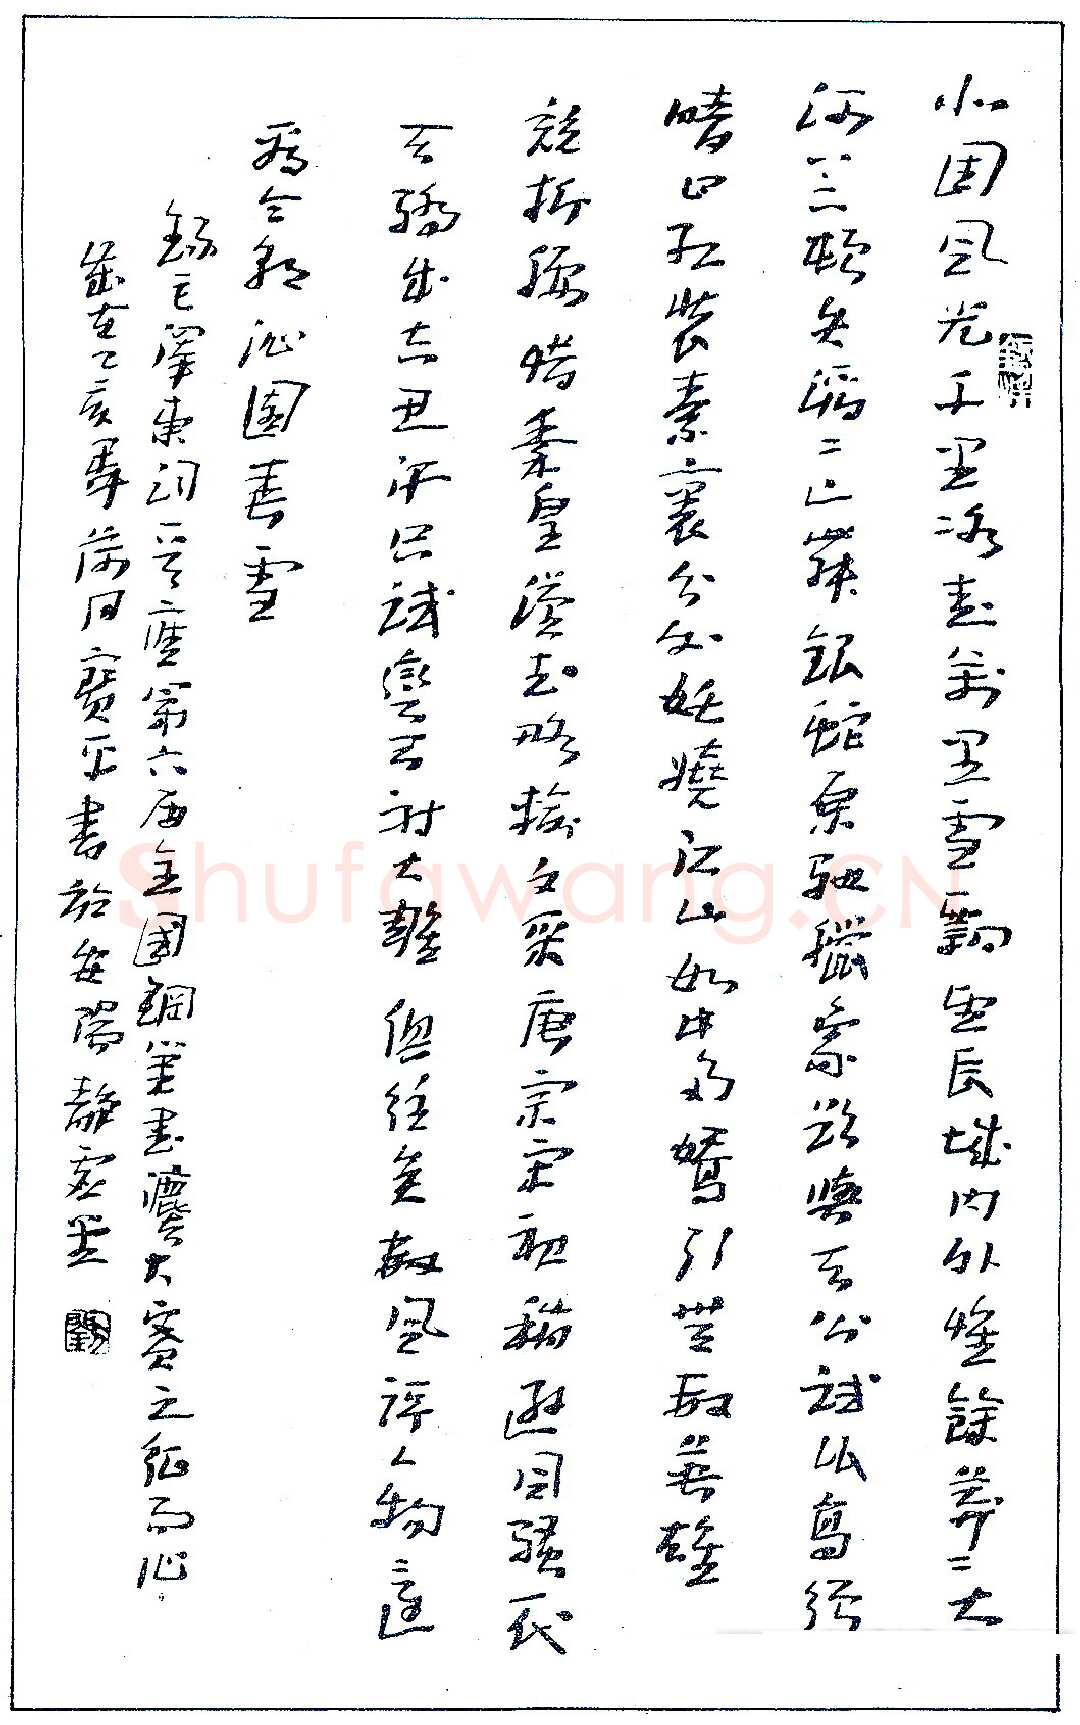 北国風光千里冰封萬里雪飄望長城内外惟餘莽〻大
河上下頓失滔〻山舞銀蛇原馳蠟象欲與天公試比高須
晴日紅裝素裹分外妖嬈江山如此多嬌引無數英雄
競折腰惜秦皇漢武略輸文采唐宗宋祖稍遜風騷一代
天驕成吉思汗只識彎弓射大雕俱往矣數風流人物還
看今朝沁園春雪
錄毛澤東詞一首應第六届全國鋼筆書法大賽之征而
歲在乙亥月寶平書於安陽靜虛堂
Shufawang.CN